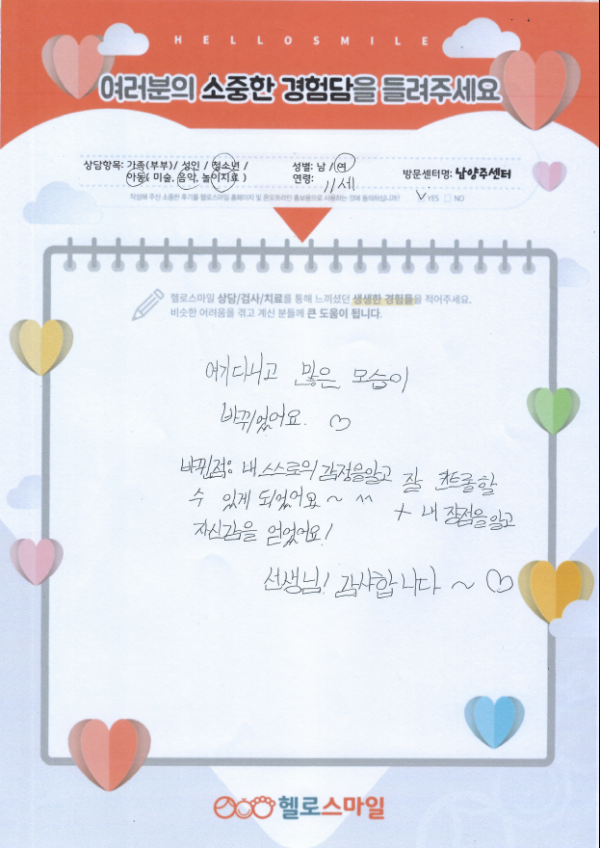 HELLOSMILE
여러분의 소중한 경험담을 들려주세요
상담항목: 가족(부부)/ 성인 / 청소년 /
아동( 미술, 음악, 놀이치료 )
성별: 남 / 여
연령: 11세
방문센터명: 남양주센터
작성해 주신 소중한 후기를 헬로스마일 홈페이지 및 온오프라인 홍보용으로 사용하는 것에 동의하십니까? ✓YES □ NO
헬로스마일 상담/검사/치료를 통해 느끼셨던 생생한 경험들을 적어주세요.
비슷한 어려움을 겪고 계신 분들께 큰 도움이 됩니다.
여기다니고 많은 모습이
바뀌었어요. ♡
바뀐점: 내 스스로의 감정을알고 잘 컨트롤할
수 있게 되었어요~ ^^ + 내 장점을알고
자신감을 얻었어요!
선생님! 감사합니다 ~ ♡
헬로스마일